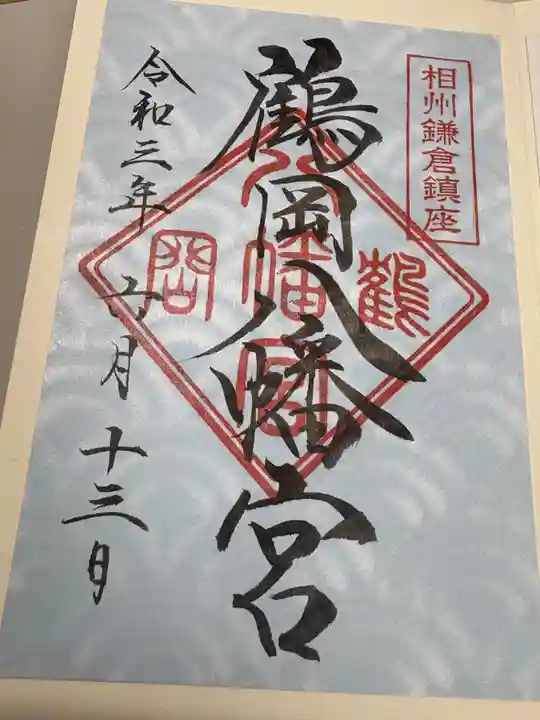 相州鎌倉鎮座
鶴岡八幡宮
鶴
八幡宮
岡
令和三年 六月 十三日